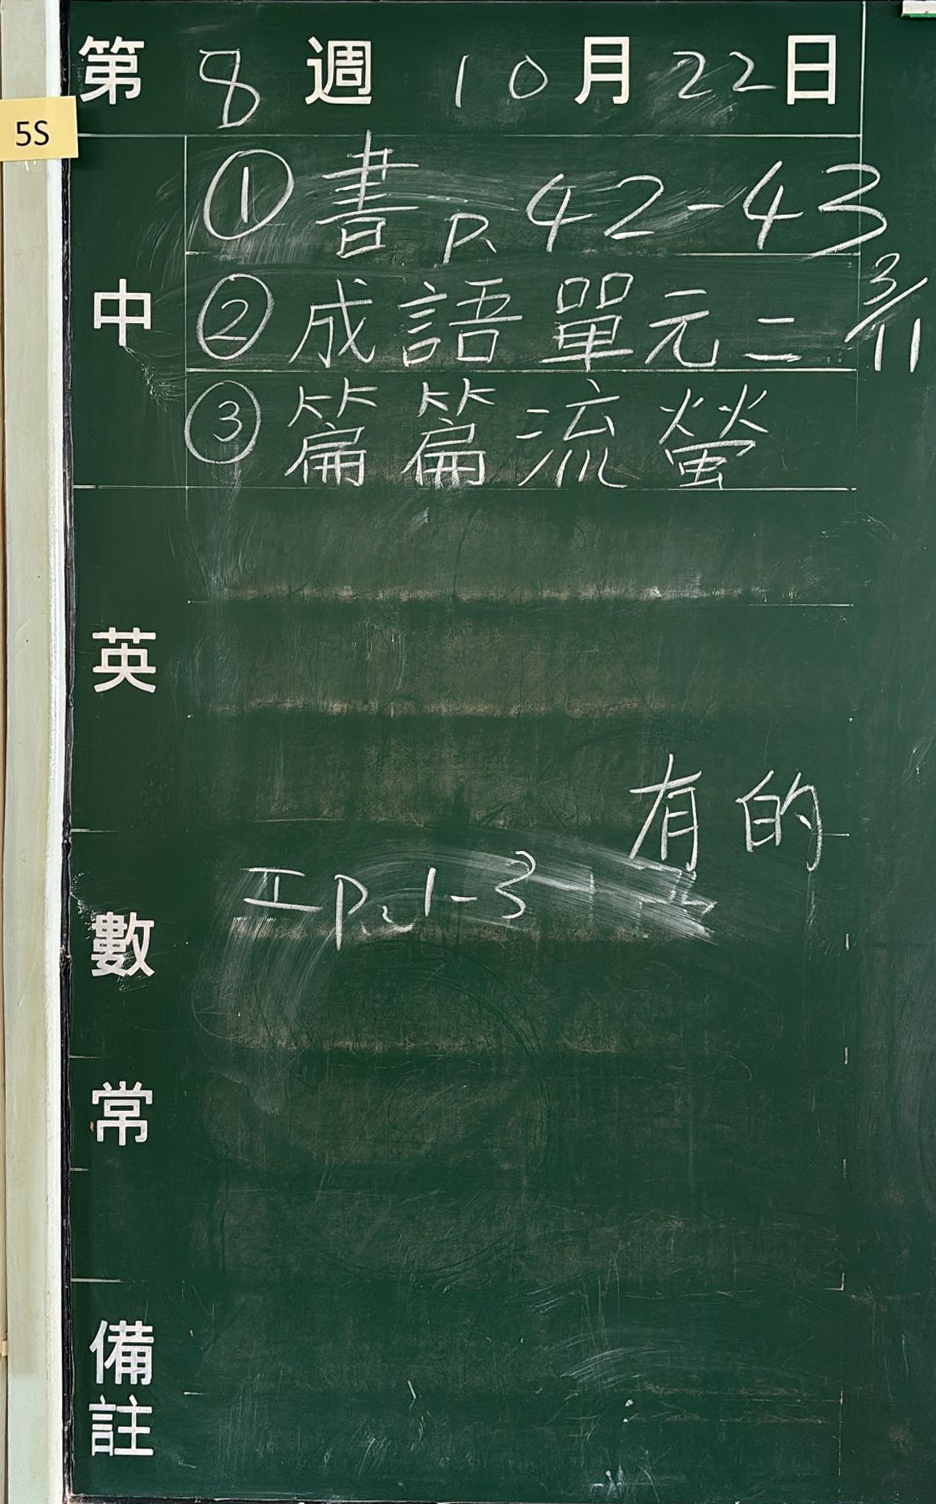 第 8 週 10 月 22 日
5S
中
① 書 P. 42-43
② 成語單元二 3/11
③ 篇篇流螢
英
有的
數
工 P.1-3
常
備註